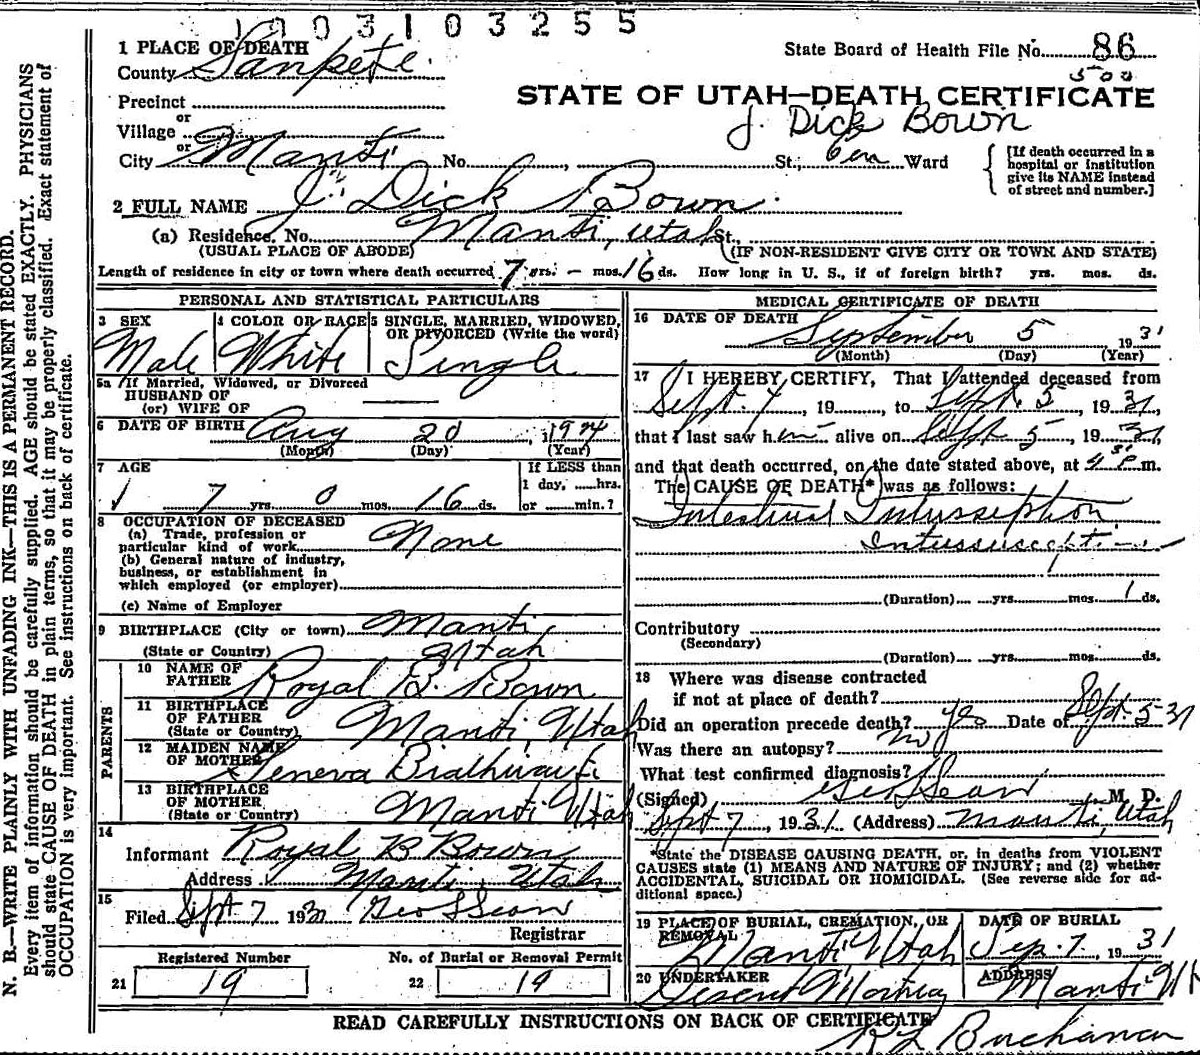 1003103255
1 PLACE OF DEATH
State Board of Health File No. 86
County Sanpete.
500
Precinct
STATE OF UTAH—DEATH CERTIFICATE
or
Village
J. Dick Bown
or
City Manti No. , St., Ward
[If death occurred in a
hospital or institution
give its NAME instead
of street and number.]
2 FULL NAME J. Dick Bown.
(a) Residence. No. Manti, Utah St.,
(USUAL PLACE OF ABODE) (IF NON-RESIDENT GIVE CITY OR TOWN AND STATE)
Length of residence in city or town where death occurred 7 yrs. – mos. 16 ds. How long in U. S., if of foreign birth? yrs. mos. ds.
PERSONAL AND STATISTICAL PARTICULARS
3 SEX
Male
4 COLOR OR RACE
White
5 SINGLE, MARRIED, WIDOWED,
OR DIVORCED (Write the word)
Single
5a If Married, Widowed, or Divorced
HUSBAND OF
(or) WIFE OF
6 DATE OF BIRTH Aug 20, 1924
(Month) (Day) (Year)
7 AGE
7 yrs. 0 mos. 16 ds.
If LESS than
1 day, hrs.
or min.?
8 OCCUPATION OF DECEASED
(a) Trade, profession or
particular kind of work None
(b) General nature of industry,
business, or establishment in
which employed (or employer)
(c) Name of Employer
9 BIRTHPLACE (City or town) Manti
(State or Country) Utah
PARENTS
10 NAME OF
FATHER Royal B. Bown
11 BIRTHPLACE
OF FATHER
(State or Country) Manti, Utah
12 MAIDEN NAME
OF MOTHER Geneva
13 BIRTHPLACE
OF MOTHER
(State or Country) Manti Utah
14
Informant Royal B Bown
Address Manti, Utah
15
Filed Sept 7 193 Geo S Sean
Registrar
Registered Number
21 19
No. of Burial or Removal Permit
22 19
MEDICAL CERTIFICATE OF DEATH
16 DATE OF DEATH
September 5 1931
(Month) (Day) (Year)
17 I HEREBY CERTIFY, That I attended deceased from
Sept. 4, 19 , to Sept. 5, 1931,
that I last saw him alive on Sept 5, 1931,
and that death occurred, on the date stated above, at 4 30 p m.
The CAUSE OF DEATH* was as follows:
Intestinal Intusseption
Intussuscept.
(Duration) yrs. mos. 1 ds.
Contributory
(Secondary)
(Duration) yrs. mos. ds.
18 Where was disease contracted
if not at place of death?
Did an operation precede death? yes Date of Sept. 5-31
Was there an autopsy? no
What test confirmed diagnosis?
(Signed) Geo S Sean M. D.
Sept 7, 1931 (Address) Manti, Utah
*State the DISEASE CAUSING DEATH, or, in deaths from VIOLENT
CAUSES state (1) MEANS AND NATURE OF INJURY; and (2) whether
ACCIDENTAL, SUICIDAL OR HOMICIDAL. (See reverse side for ad-
ditional space.)
19 PLACE OF BURIAL, CREMATION, OR
REMOVAL
Manti Utah
DATE OF BURIAL
Sep. 7, 1931
20 UNDERTAKER
ADDRESS
Manti Ut
READ CAREFULLY INSTRUCTIONS ON BACK OF CERTIFICATE
Buchanan
N. B.—WRITE PLAINLY WITH UNFADING INK—THIS IS A PERMANENT RECORD.
Every item of information should be carefully supplied. AGE should be stated EXACTLY. PHYSICIANS
should state CAUSE OF DEATH in plain terms, so that it may be properly classified. Exact statement of
OCCUPATION is very important. See Instructions on back of certificate.